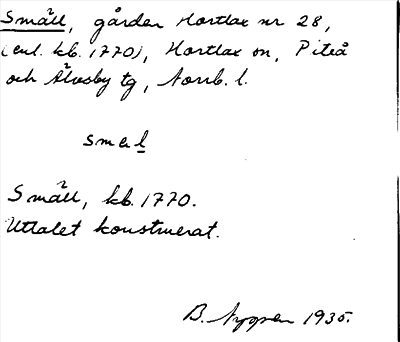 Smäll, gården Hortlax nr 28,
(enl. kb. 1770), Hortlax sn, Piteå
och Älvsby tg, Norrb. l.
smɛl
Smäll, kb. 1770.
Uttalet konstruerat.
B. Nyman 1935.